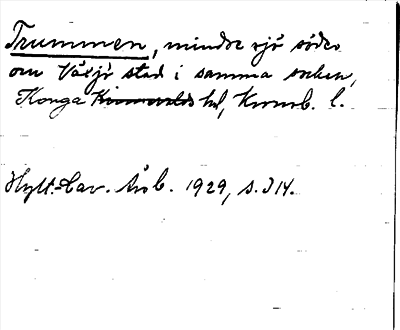 Trummen, mindre sjö söder
om Växjö stad i samma socken,
Konga hd, Kronob. l.
Hylt.-Cav. Årsb. 1929, s. 314.